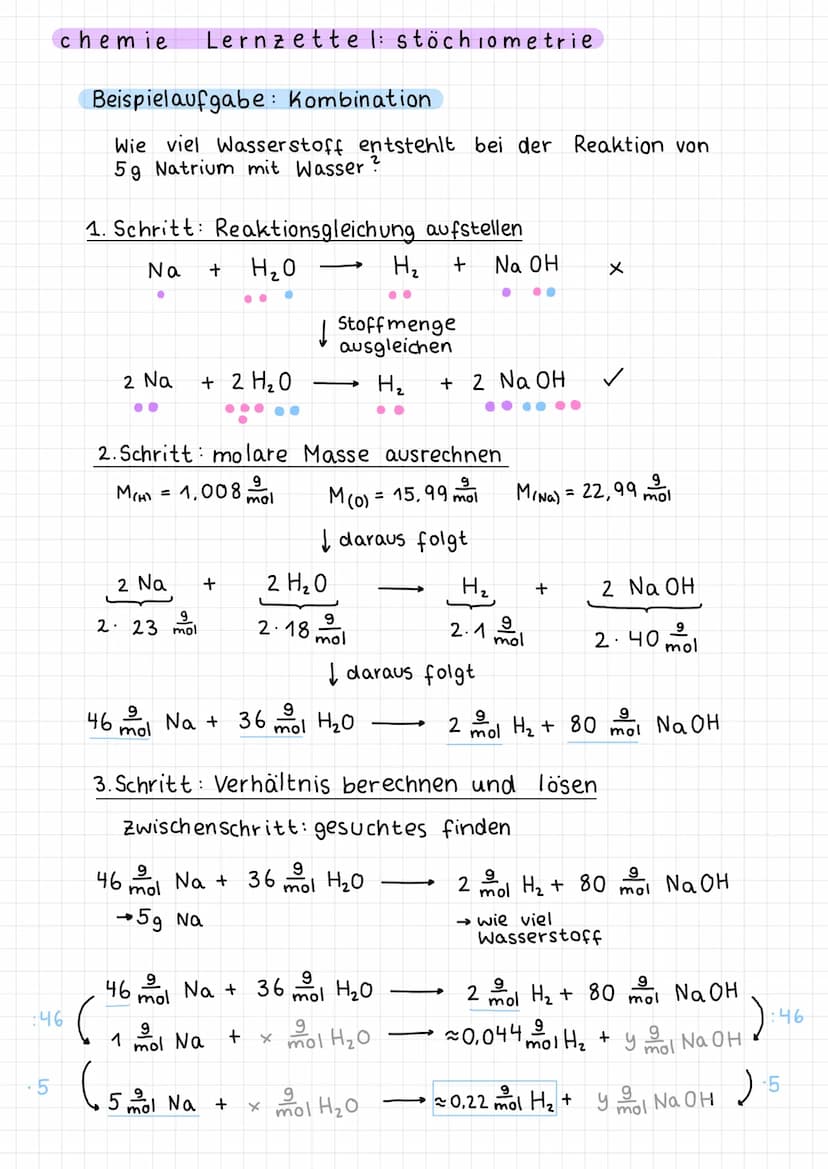 chemie Lernzettel: stöchiometrie
Beispielaufgabe: Kombination
Wie viel Wasserstoff entstehlt bei der Reaktion von
5g Natrium mit Wasser?
1. Schritt: Reaktionsgleichung aufstellen
Na + H₂O → H₂ + NaOH ×
↓ Stoffmenge
ausgleichen
2 Na + 2 H₂O → H₂ + 2 NaOH ✓
2. Schritt: molare Masse ausrechnen
M(H) = 1,008 g/mol M(O) = 15,99 g/mol M(Na) = 22,99 g/mol
↓ daraus folgt
2 Na + 2 H₂O → H₂ + 2 NaOH
2 · 23 g/mol 2 · 18 g/mol 2 · 1 g/mol 2 · 40 g/mol
↓ daraus folgt
46 g/mol Na + 36 g/mol H₂O → 2 g/mol H₂ + 80 g/mol NaOH
3. Schritt: Verhältnis berechnen und lösen
Zwischenschritt: gesuchtes finden
46 g/mol Na + 36 g/mol H₂O → 2 g/mol H₂ + 80 g/mol NaOH
→ 5g Na → wie viel
Wasserstoff
46 g/mol Na + 36 g/mol H₂O → 2 g/mol H₂ + 80 g/mol NaOH
:46 :46
1 g/mol Na + x g/mol H₂O → ≈0,044 g/mol H₂ + y g/mol NaOH
·5 ·5
5 g/mol Na + x g/mol H₂O → ≈0,22 g/mol H₂ + y g/mol NaOH